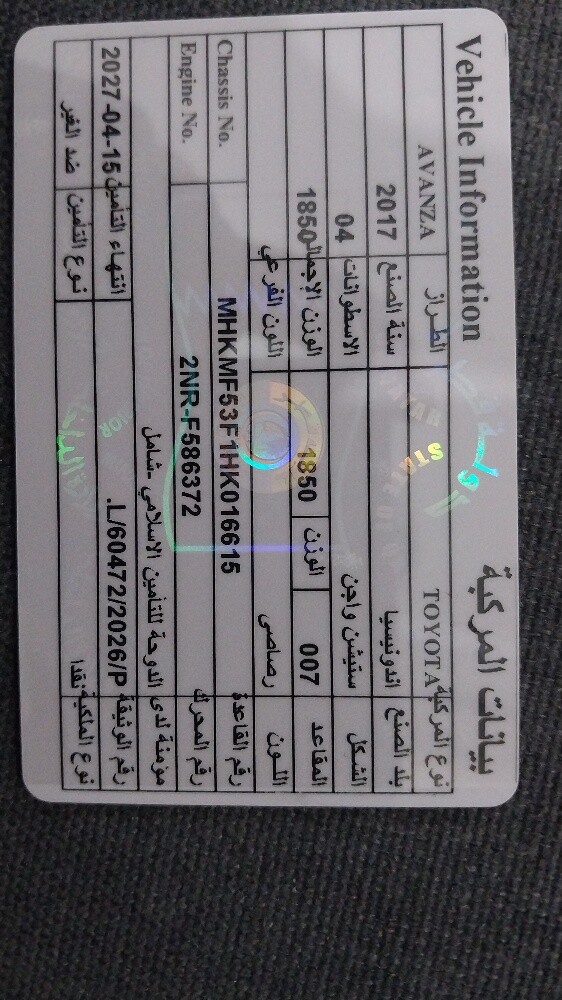 Vehicle Information بيانات المركبة
نوع المركبة TOYOTA الطراز AVANZA
بلد الصنع اندونيسيا سنة الصنع 2017
الشكل ستيشن واجن الاسطوانات 04
المقاعد 007 الوزن 1850 الوزن الإجمالي 1850
اللون رصاصي اللون الفرعي
رقم القاعدة MHKMF53F1HK016615 Chassis No.
رقم المحرك 2NR-F586372 Engine No.
مؤمنة لدى الدوحة للتأمين الاسلامي -شامل
رقم الوثيقة L/60472/2026/P. انتهاء التأمين 2027-04-15
نوع الملكية نقدا نوع التأمين ضد الغير
STATE OF